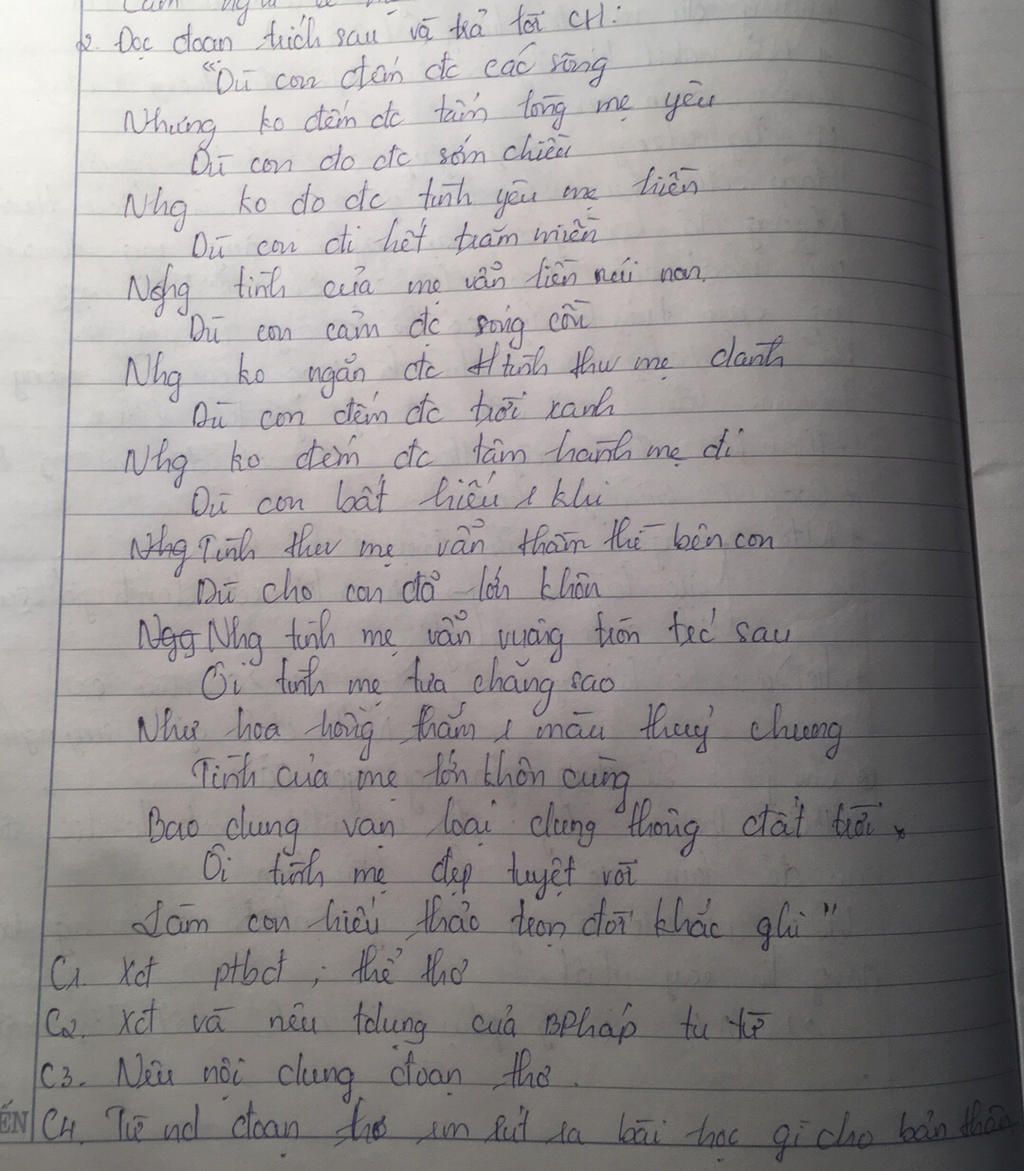 Cảm nghĩ
2. Đọc đoạn trích sau và trả lời CH:
"Dù con đếm đc các sông
Nhưng ko đếm đc tấm lòng mẹ yêu
Dù con đo đc sớm chiều
Nhg ko đo đc tình yêu mẹ hiền
Dù con đi hết trăm miền
Nhg tình của mẹ vẫn liền núi non.
Dù con cản đc sóng cồn
Nhg ko ngăn đc tình thư mẹ dành
Dù con đếm đc trời xanh
Nhg ko đếm đc tâm hành mẹ đi
Dù con bất hiếu 1 khi
Nhg Tình thư mẹ vẫn thầm thì bên con
Dù cho con đã lớn khôn
Nhg tình mẹ vẫn vuông tròn trc sau
Ôi tình mẹ tựa chăng sao
Như hoa hồng thắm 1 màu thuỷ chung
Tình của mẹ lớn khôn cùng
Bao dung vạn loại dung thông đất trời
Ôi tình mẹ đẹp tuyệt vời
Làm con hiếu thảo trọn đời khắc ghi"
C1. Xđ ptbđ, thể thơ
C2. Xđ và nêu tdụng của BPháp tu từ
C3. Nêu nội dung đoạn thơ.
C4. Từ nd đoạn thơ em rút ra bài học gì cho bản thân
ẾN